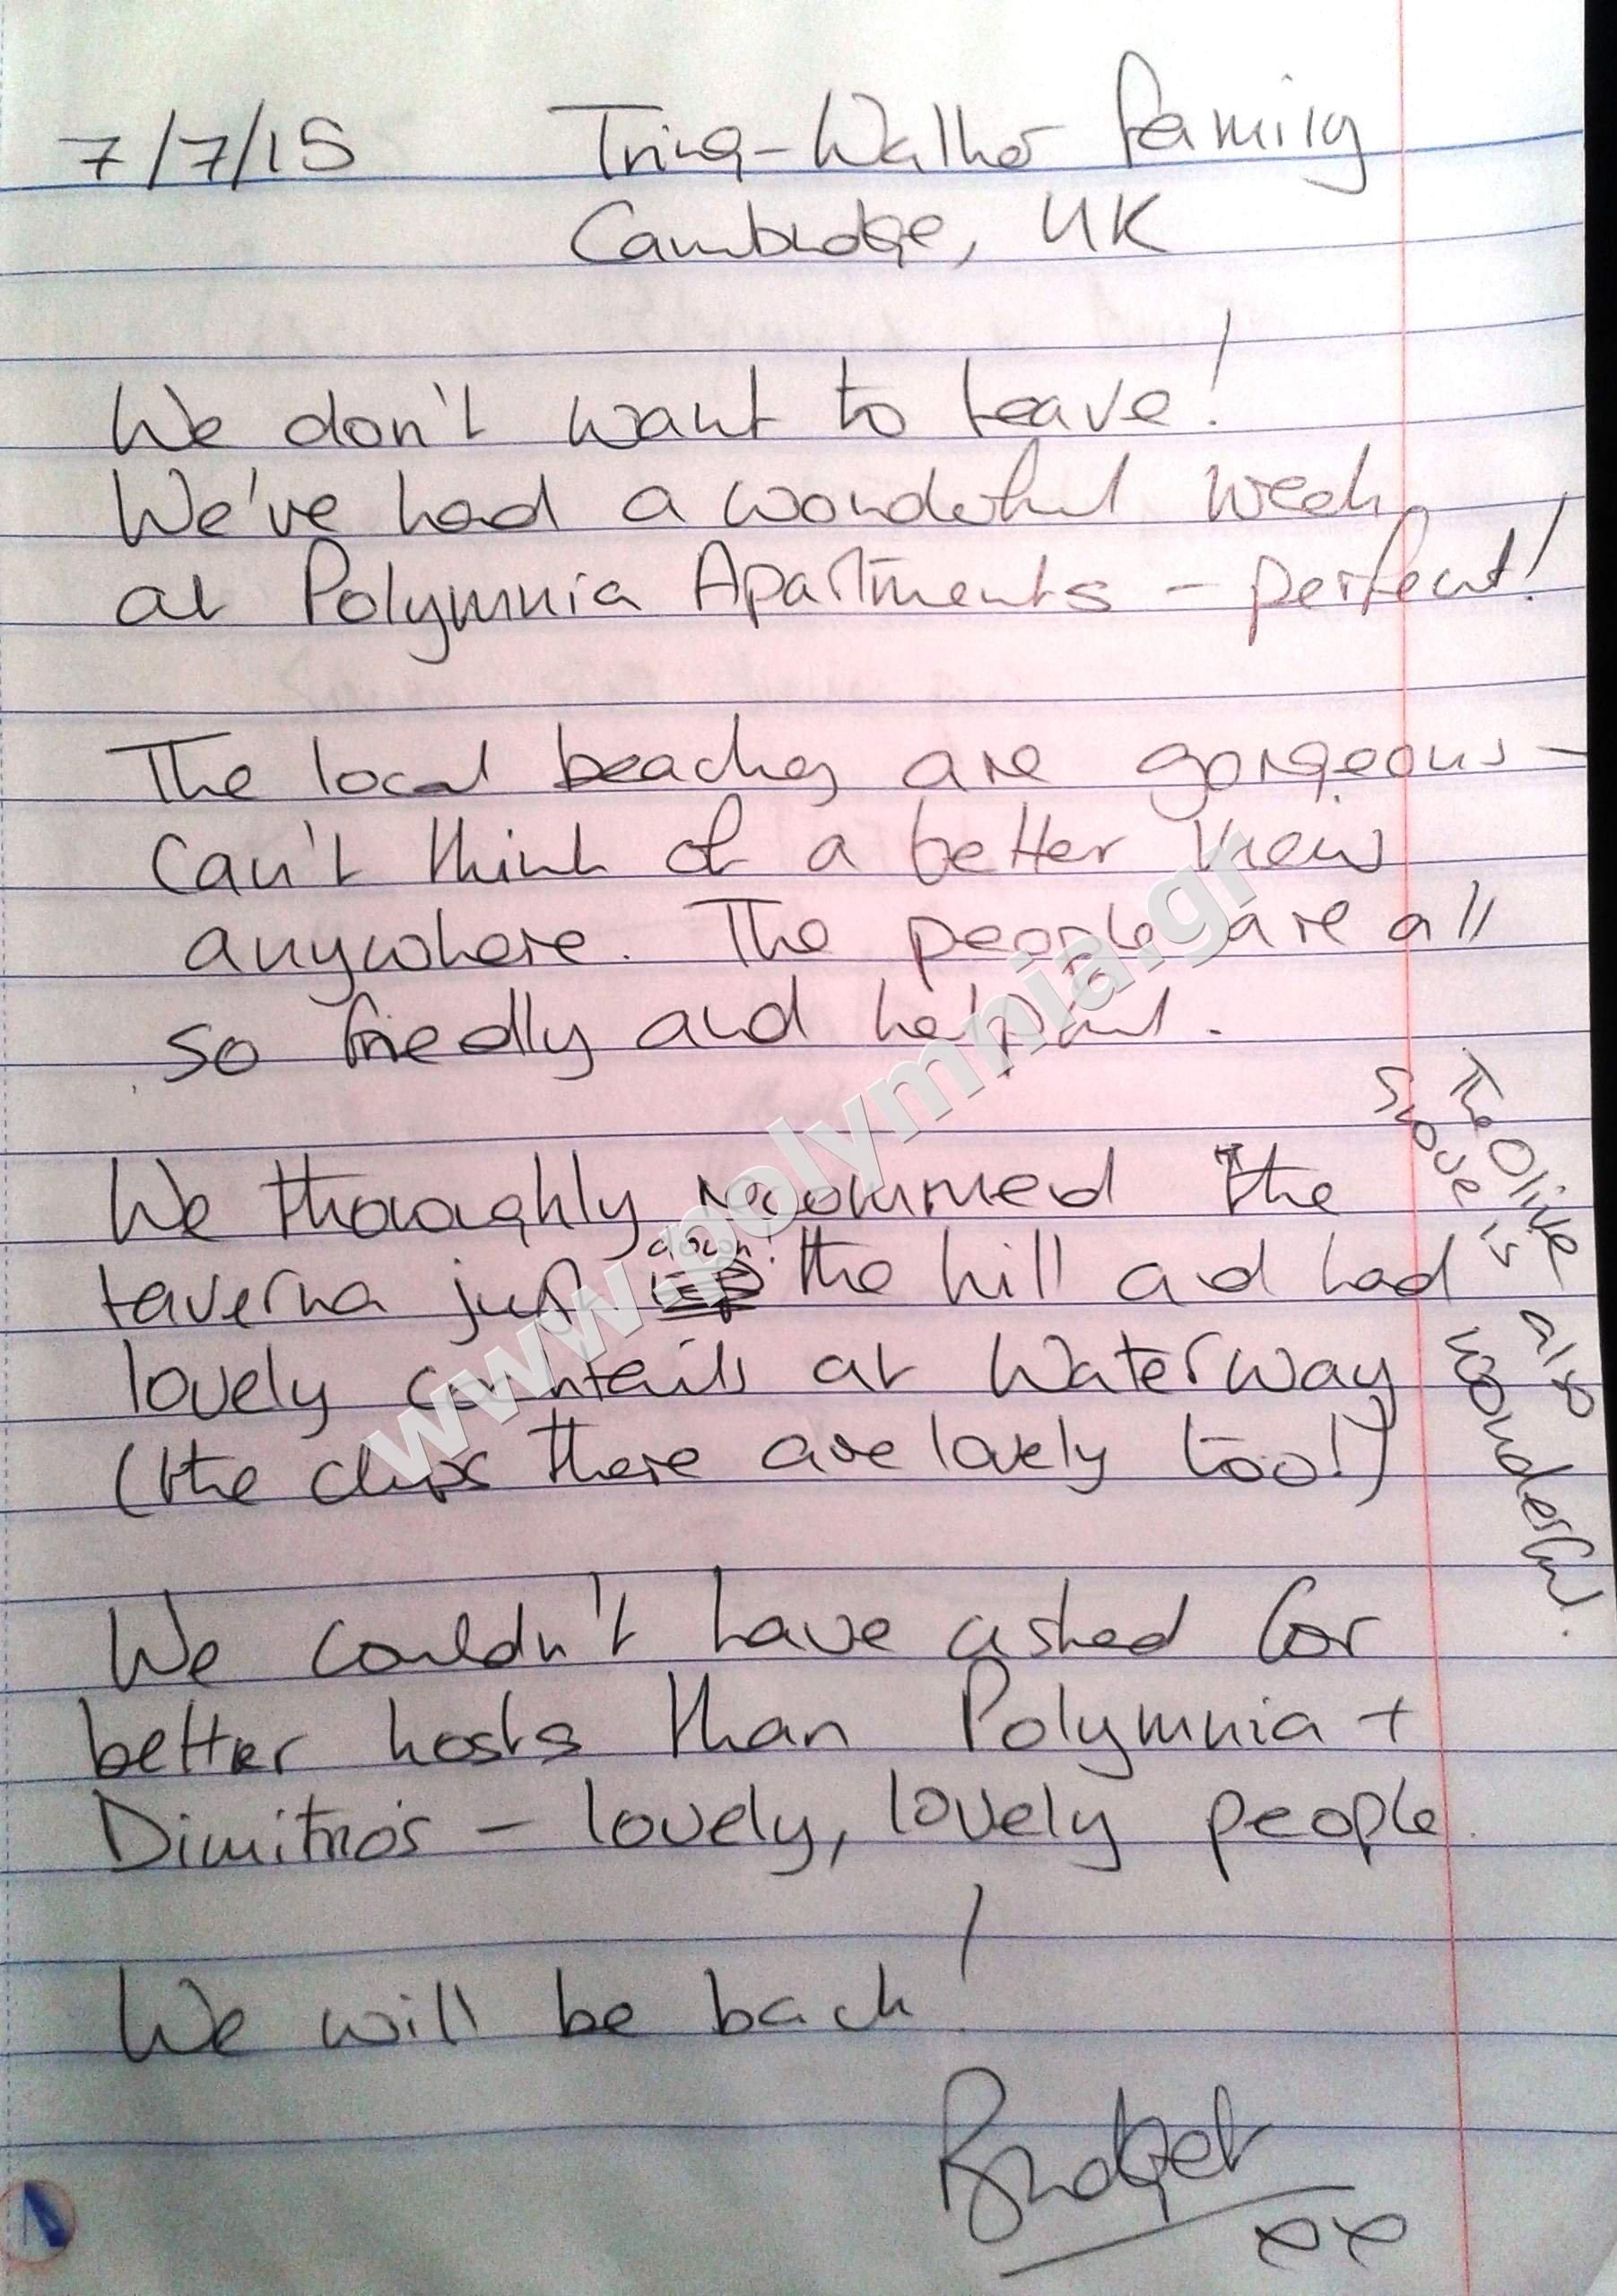 7/7/15 Tring-Walker Family
Cambridge, UK
We don't want to leave!
We've had a wonderful week
at Polymnia Apartments - perfect!
The local beaches are gorgeous -
can't think of a better view
anywhere. The people are all
so friedly and helpful.
We thoroughly recommed the
taverna just down the hill and had
lovely cocktails at Waterway
(the chips there are lovely too!)
The Olive
Grove is
also
wonderful!
We couldn't have asked for
better hosts than Polymnia +
Dimitrios - lovely, lovely people.
We will be back!
Bridget
xx
www.polymnia.gr